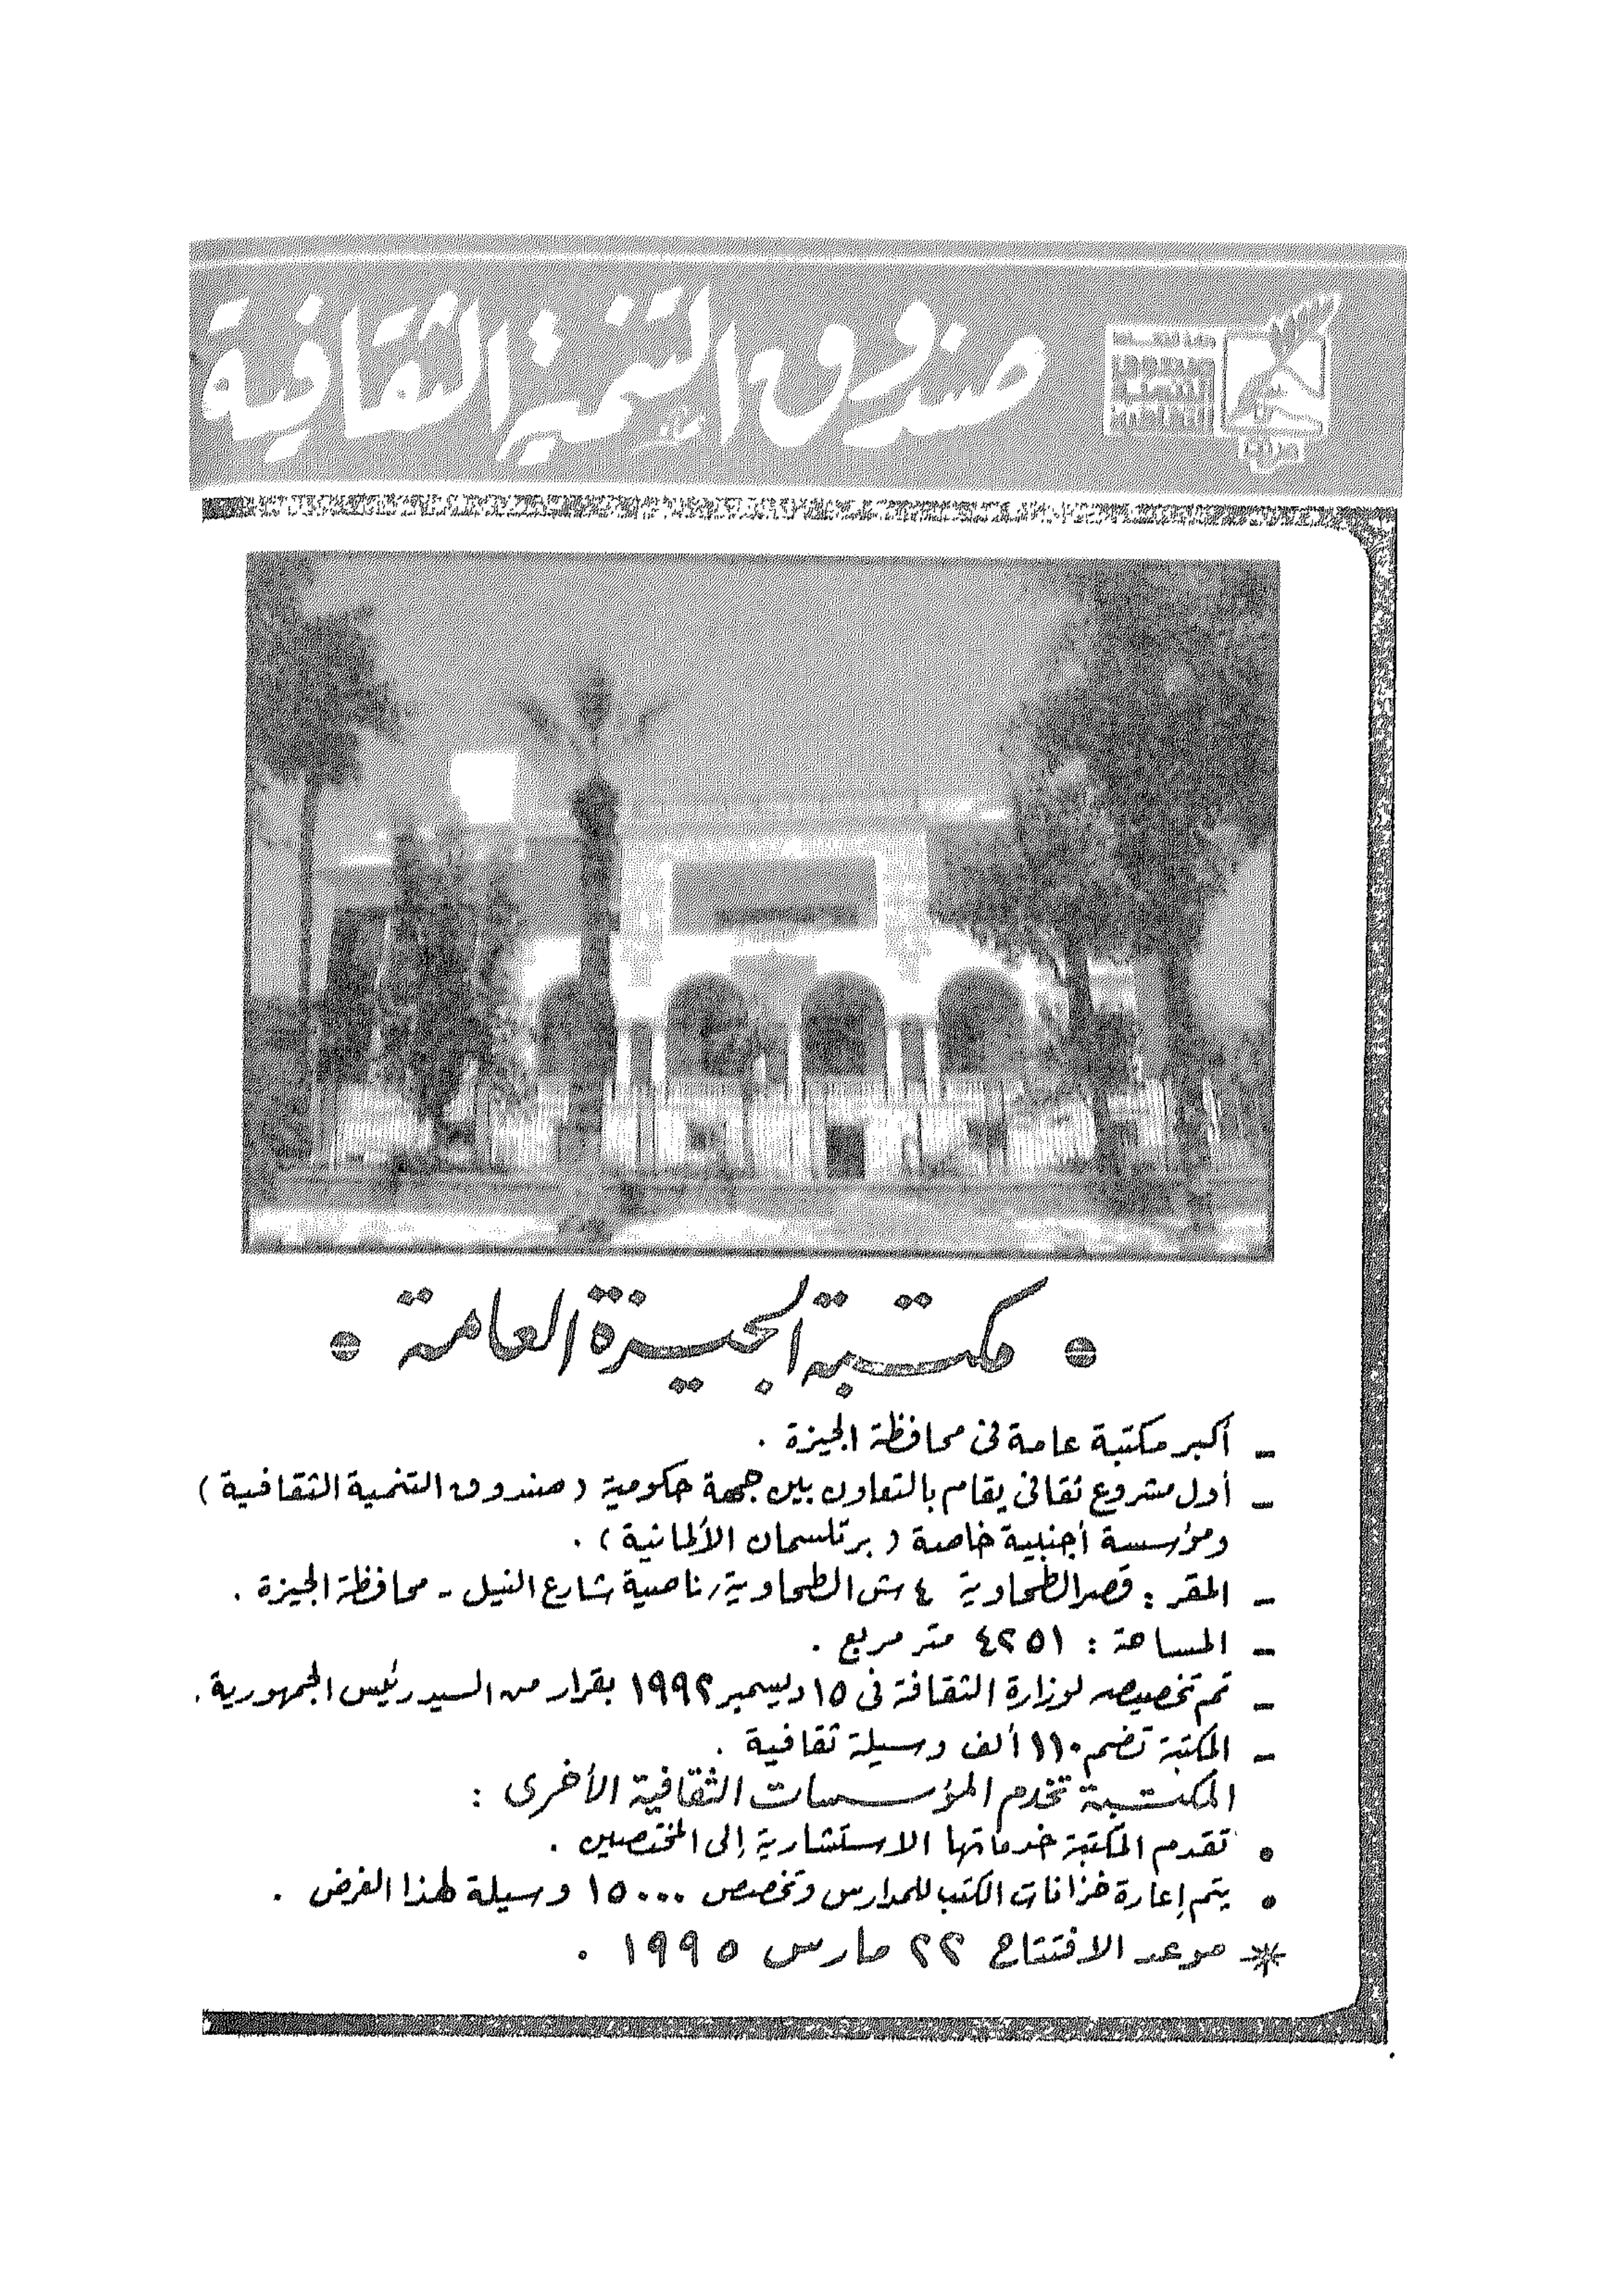 صندوق التنمية الثقافية
مكتبة الجيزة العامة
ـ أكبر مكتبة عامة فى محافظة الجيزة .
ـ أول مشروع ثقافى يقام بالتعاون بين جهة حكومية ( صندوق التنمية الثقافية )
ومؤسسة أجنبية خاصة ( برتلسمان الألمانية ) .
ـ المقر : قصر الطحاوية ٤ ش الطحاوية / ناصية شارع النيل ـ محافظة الجيزة .
ـ المساحة : ٤٢٥١ متر مربع .
ـ تم تخصيصه لوزارة الثقافة فى ١٥ ديسمبر ١٩٩٢ بقرار من السيد رئيس الجمهورية .
ـ المكتبة تضم ١١٠ ألف وسيلة ثقافية .
المكتبة تخدم المؤسسات الثقافية الأخرى :
• تقدم المكتبة خدماتها الاستشارية إلى المختصين .
• يتم إعارة خزانات الكتب للمدارس وتخصص ١٥٠٠٠ وسيلة لهذا الغرض .
* موعد الافتتاح ٢٢ مارس ١٩٩٥ .